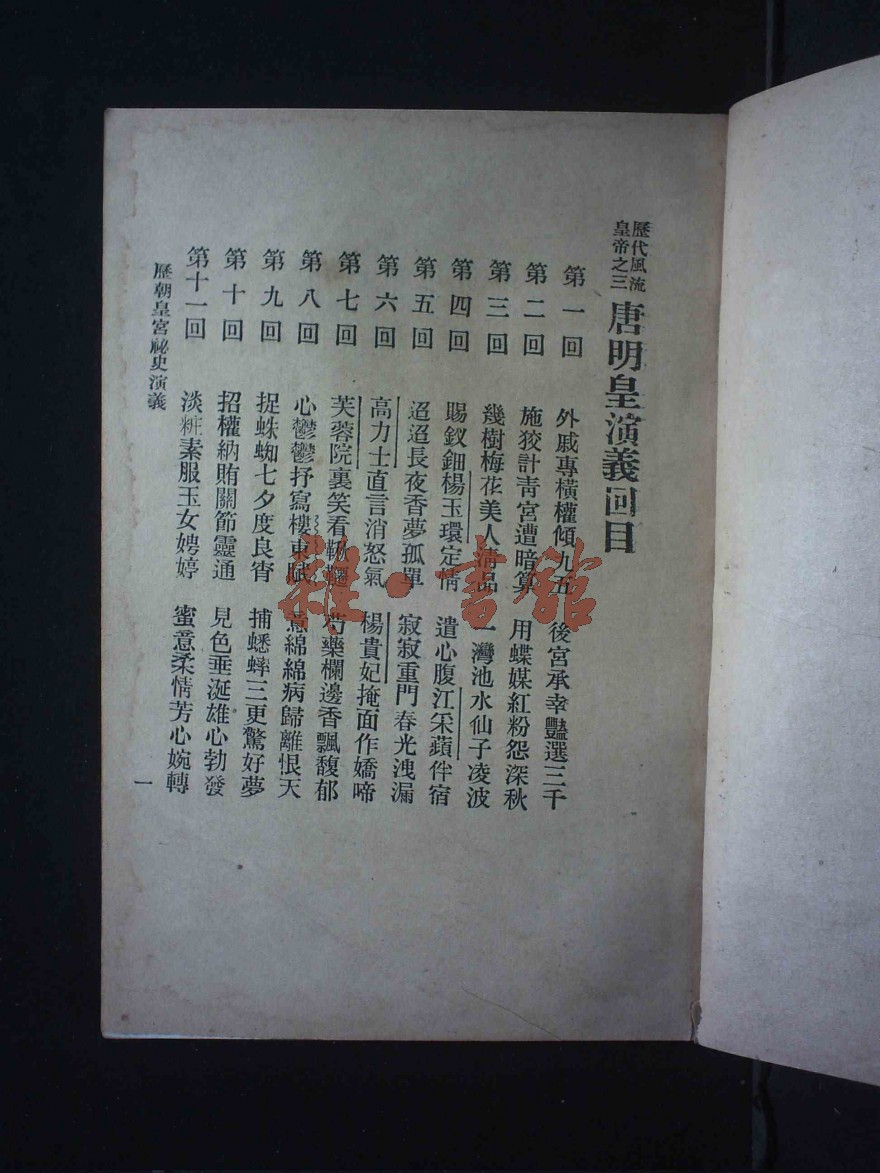 歷代風流
皇帝之三
唐明皇演義回目
第一回 外戚專橫權傾九五 後宮承幸豔選三千
第二回 施狡計靑宮遭暗算 用蝶媒紅粉怨深秋
第三回 幾樹梅花美人淸品 一灣池水仙子凌波
第四回 賜釵鈿楊玉環定情 遣心腹江采蘋伴宿
第五回 迢迢長夜香夢孤單 寂寂重門春光洩漏
第六回 高力士直言消怒氣 楊貴妃掩面作嬌啼
第七回 芙蓉院裏笑看鞦韆 芍藥欄邊香飄馥郁
第八回 心鬱鬱抒寫樓東賦 意綿綿病歸離恨天
第九回 捉蛛蜘七夕度良宵 捕蟋蟀三更驚好夢
第十回 招權納賄關節靈通 見色垂涎雄心勃發
第十一回 淡粧素服玉女娉婷 蜜意柔情芳心婉轉
歷朝皇宮祕史演義
一
雜·書館